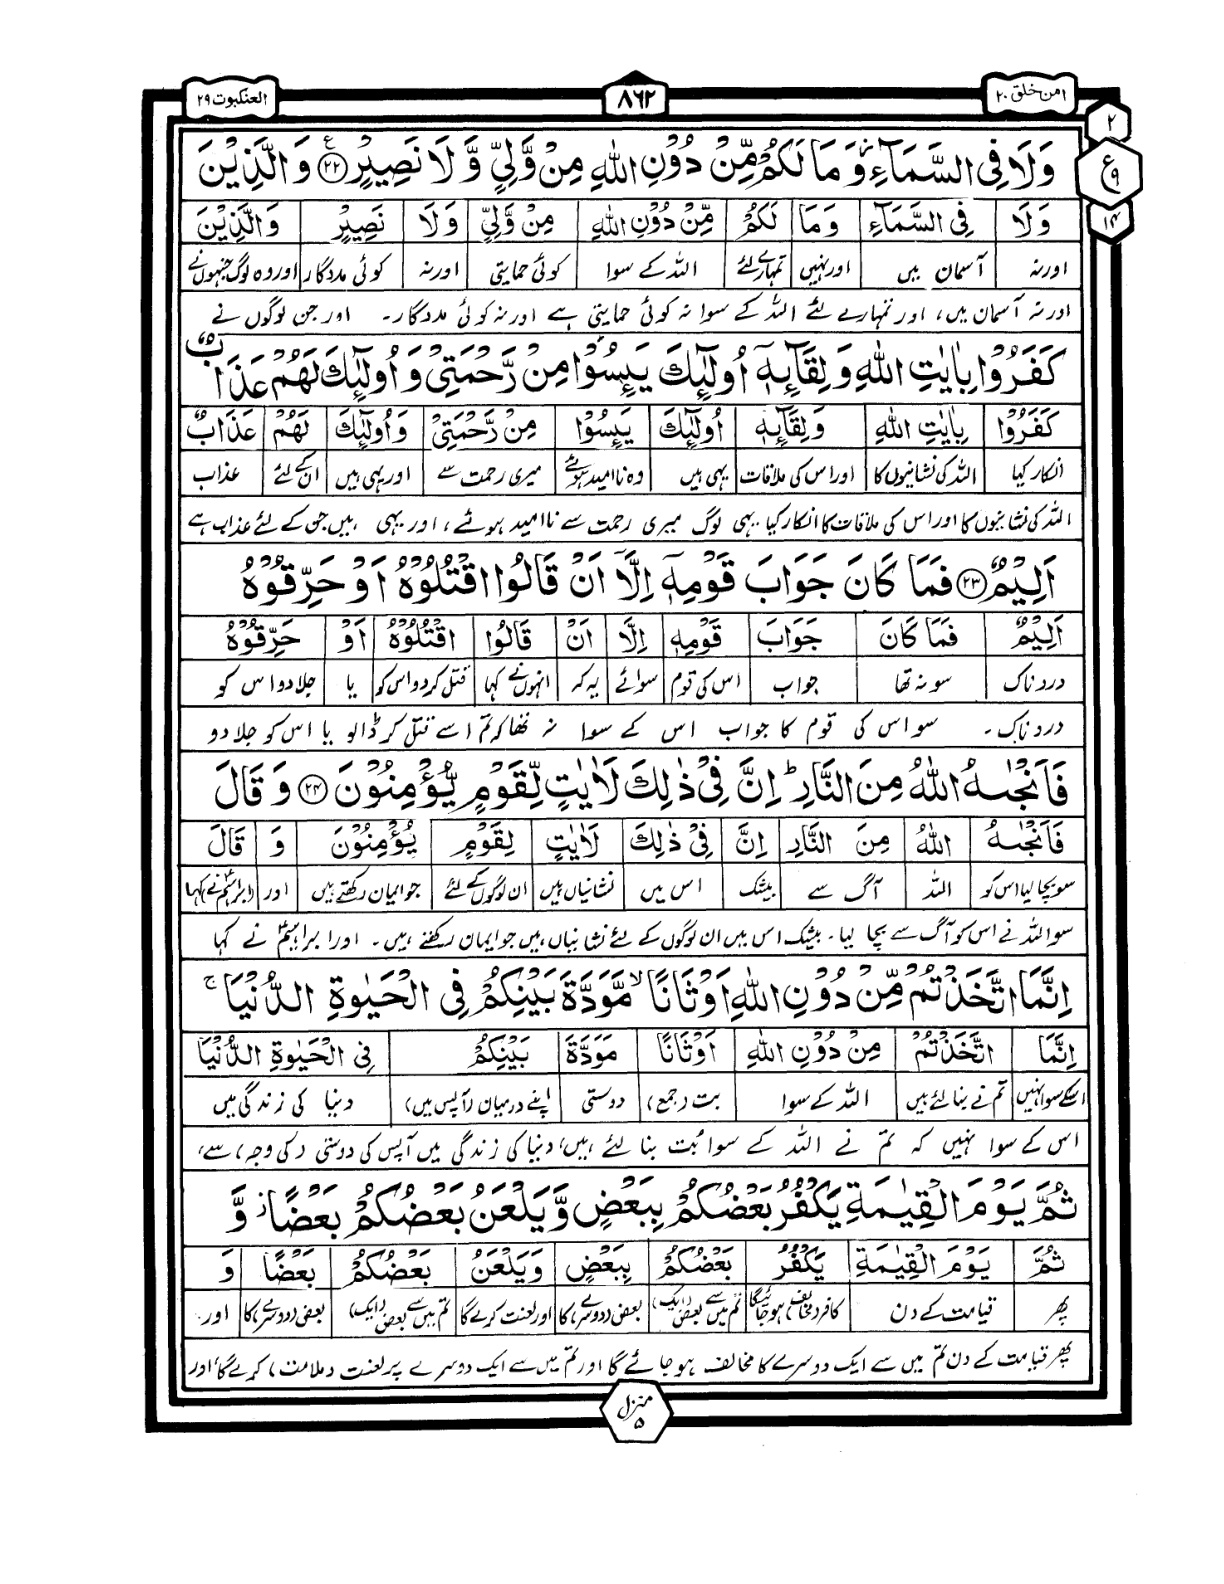 امن خلق ۲۰
۸۶۲
العنكبوت ۲۹
۲
ع
۹
۱۴
وَلَا فِی السَّمَآءِ ؗ وَمَا لَكُمْ مِّنْ دُوْنِ اللّٰهِ مِنْ وَّلِیٍّ وَّلَا نَصِیْرٍ ﴿۲۲﴾ ع وَالَّذِیْنَ
وَلَا فِی السَّمَآءِ وَمَا لَكُمْ مِّنْ دُوْنِ اللّٰهِ مِنْ وَّلِیٍّ وَلَا نَصِیْرٍ وَالَّذِیْنَ
اور نہ آسمان میں اور نہیں تمہارے لئے اللہ کے سوا کوئی حمایتی اور نہ کوئی مددگار اور وہ لوگ جنہوں نے
اور نہ آسمان میں، اور تمہارے لئے اللہ کے سوا نہ کوئی حمایتی ہے اور نہ کوئی مددگار۔ اور جن لوگوں نے
كَفَرُوْا بِاٰیٰتِ اللّٰهِ وَلِقَآئِهٖۤ اُولٰٓئِكَ یَئِسُوْا مِنْ رَّحْمَتِیْ وَاُولٰٓئِكَ لَهُمْ عَذَابٌ
كَفَرُوْا بِاٰیٰتِ اللّٰهِ وَلِقَآئِهٖۤ اُولٰٓئِكَ یَئِسُوْا مِنْ رَّحْمَتِیْ وَاُولٰٓئِكَ لَهُمْ عَذَابٌ
انکار کیا اللہ کی نشانیوں کا اور اس کی ملاقات یہی ہیں وہ ناامید ہوئے میری رحمت سے اور یہی ہیں ان کے لئے عذاب
اللہ کی نشانیوں کا اور اس کی ملاقات کا انکار کیا یہی لوگ میری رحمت سے ناامید ہوئے، اور یہی ہیں جن کے لئے عذاب ہے
اَلِیْمٌ ﴿۲۳﴾ فَمَا كَانَ جَوَابَ قَوْمِهٖۤ اِلَّاۤ اَنْ قَالُوا اقْتُلُوْهُ اَوْ حَرِّقُوْهُ
اَلِیْمٌ فَمَا كَانَ جَوَابَ قَوْمِهٖ اِلَّا اَنْ قَالُوا اقْتُلُوْهُ اَوْ حَرِّقُوْهُ
دردناک سو نہ تھا جواب اس کی قوم سوائے یہ کہ انہوں نے کہا قتل کردو اس کو یا جلا دو اس کو
دردناک۔ سو اس کی قوم کا جواب اس کے سوا نہ تھا کہ تم اسے قتل کر ڈالو یا اس کو جلا دو
فَاَنْجٰىهُ اللّٰهُ مِنَ النَّارِ ؕ اِنَّ فِیْ ذٰلِكَ لَاٰیٰتٍ لِّقَوْمٍ یُّؤْمِنُوْنَ ﴿۲۴﴾ وَقَالَ
فَاَنْجٰىهُ اللّٰهُ مِنَ النَّارِ اِنَّ فِیْ ذٰلِكَ لَاٰیٰتٍ لِقَوْمٍ یُؤْمِنُوْنَ وَ قَالَ
سو بچا لیا اس کو اللہ آگ سے بیشک اس میں نشانیاں ہیں ان لوگوں کے لئے جو ایمان رکھتے ہیں اور (ابراہیمؑ نے) کہا
سو اللہ نے اس کو آگ سے بچا لیا۔ بیشک اس میں ان لوگوں کے لئے نشانیاں ہیں جو ایمان رکھتے ہیں۔ اور ابراہیمؑ نے کہا
اِنَّمَا اتَّخَذْتُمْ مِّنْ دُوْنِ اللّٰهِ اَوْثَانًا ۙ مَّوَدَّةَ بَیْنِكُمْ فِی الْحَیٰوةِ الدُّنْیَا ۚ
اِنَّمَا اتَّخَذْتُمْ مِنْ دُوْنِ اللّٰهِ اَوْثَانًا مَوَدَّةَ بَیْنِكُمْ فِی الْحَیٰوةِ الدُّنْیَا
اسکے سوا نہیں تم نے بنا لئے ہیں اللہ کے سوا بت (جمع) دوستی اپنے درمیان (آپس میں) دنیا کی زندگی میں
اس کے سوا نہیں کہ تم نے اللہ کے سوا بت بنا لئے ہیں، دنیا کی زندگی میں آپس کی دوستی (کی وجہ) سے،
ثُمَّ یَوْمَ الْقِیٰمَةِ یَكْفُرُ بَعْضُكُمْ بِبَعْضٍ وَّیَلْعَنُ بَعْضُكُمْ بَعْضًا ؗ وَّ
ثُمَّ یَوْمَ الْقِیٰمَةِ یَكْفُرُ بَعْضُكُمْ بِبَعْضٍ وَیَلْعَنُ بَعْضُكُمْ بَعْضًا وَ
پھر قیامت کے دن کافر (مخالف) ہو جائیگا تم میں سے بعض (ایک) بعض (دوسرے) کا اور لعنت کرے گا تم میں سے بعض (ایک) بعض (دوسرے) کا اور
پھر قیامت کے دن تم میں سے ایک دوسرے کا مخالف ہو جائے گا اور تم میں سے ایک دوسرے پر لعنت (ملامت) کرے گا، اور
منزل ۵